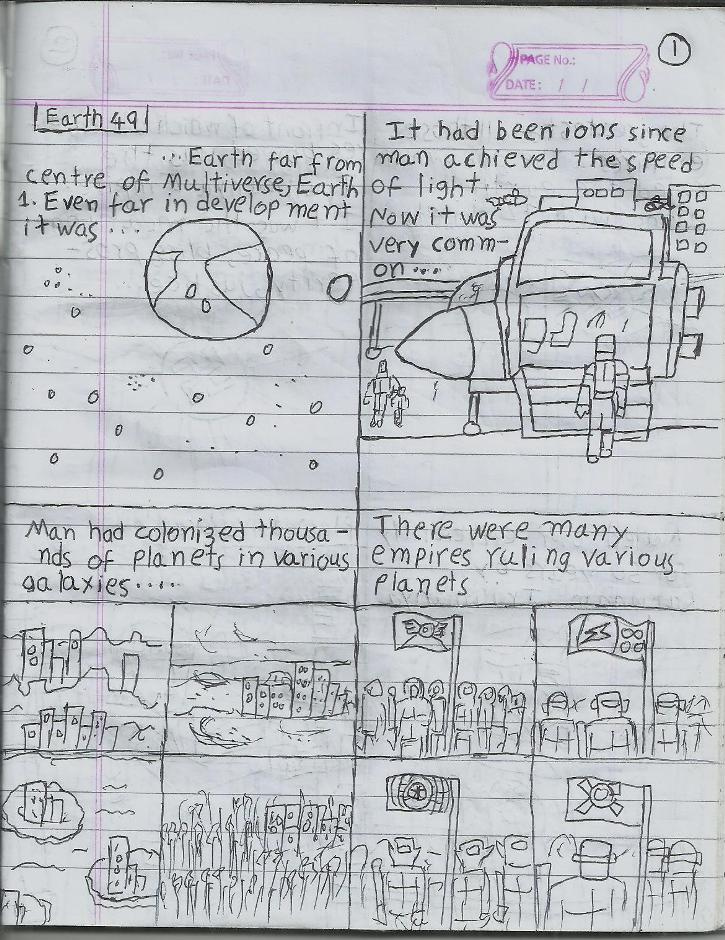 1
PAGE No.:
DATE: / /
Earth 49
...Earth far from
centre of Multiverse, Earth
1. Even far in development
it was...
It had been ions since
man achieved the speed
of light
Now it was
very comm-
on....
Man had colonized thousa-
nds of planets in various
galaxies....
There were many
empires ruling various
planets